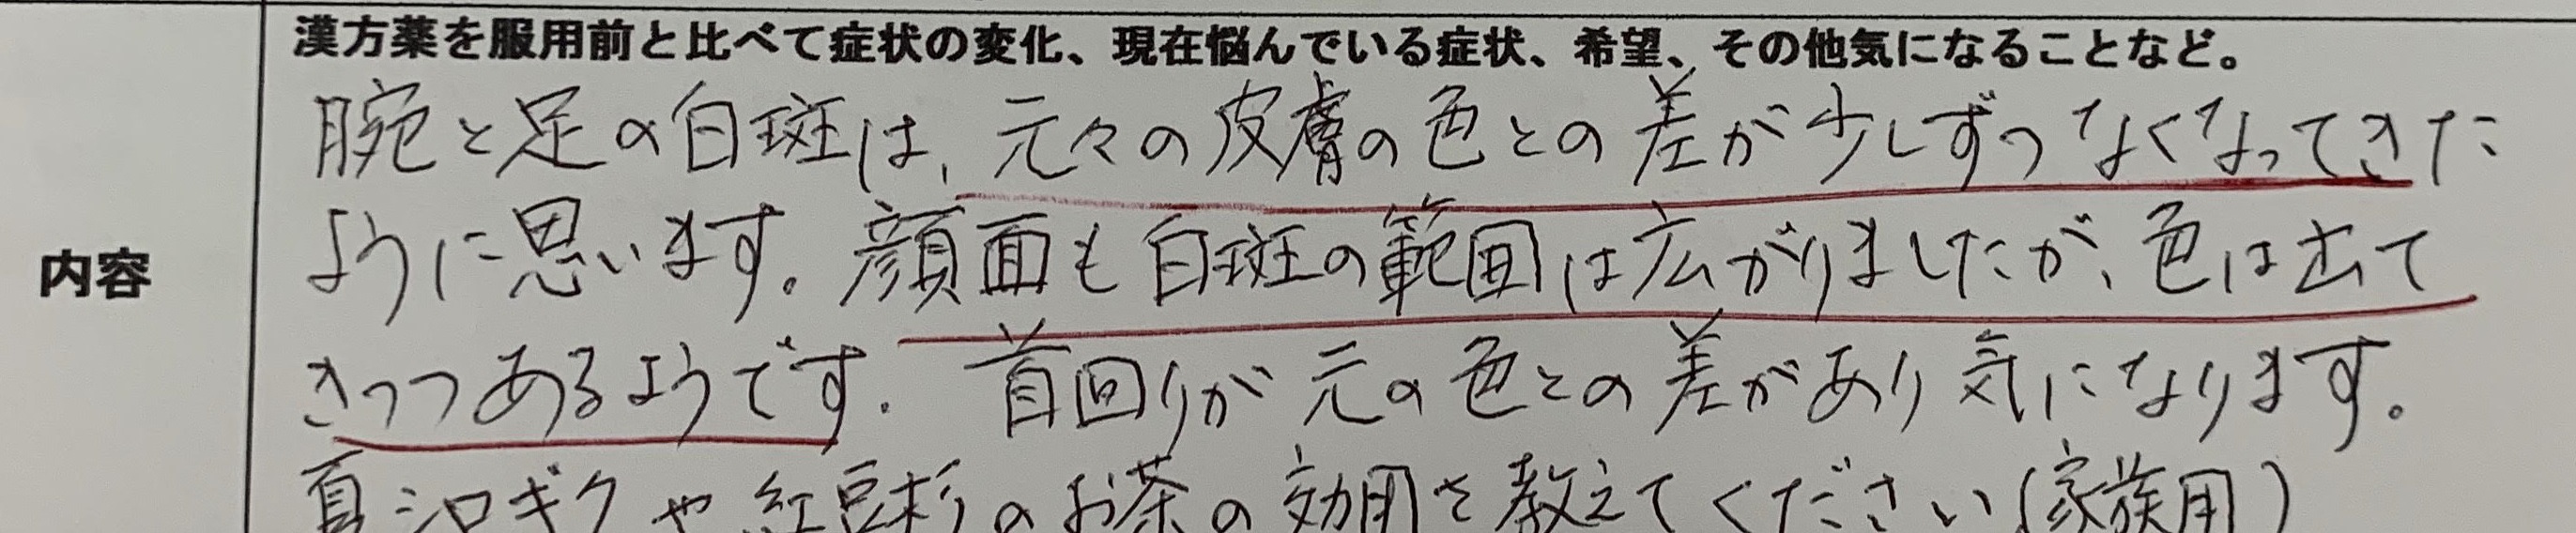 漢方薬を服用前と比べて症状の変化、現在悩んでいる症状、希望、その他気になることなど。
腕と足の白斑は、元々の皮膚の色との差が少しずつなくなってきた
内容
ように思います。顔面も白斑の範囲は広がりましたが、色は出て
きつつあるようです。首回りが元の色との差があり気になります。
夏シロギクや紅豆杉のお茶の効用を教えてください(家族用)